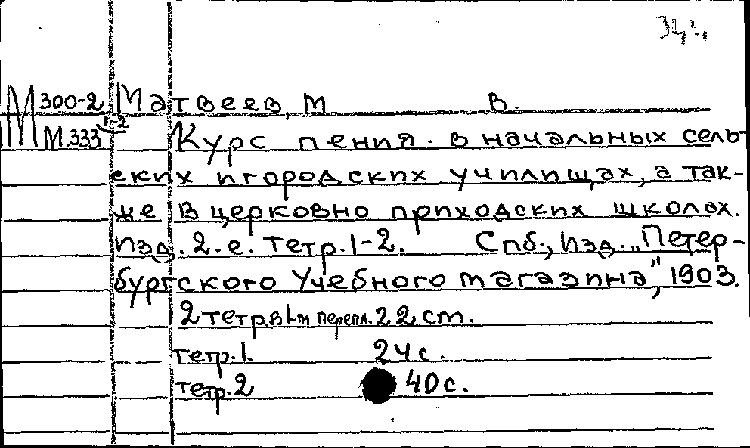 М 300-2 Матвеев, М В.
1-2
М 333 Курс пения. в начальных сель-
ских и городских училищах, а так-
же в церковно приходских школах.
Изд. 2-е. Тетр. 1-2. Спб., Изд. „Петер-
бургского Учебного магазина", 1903.
2 тетр. в 1-м перепл. 22 ст.
тетр. 1. 24 с.
тетр. 2 40 с.